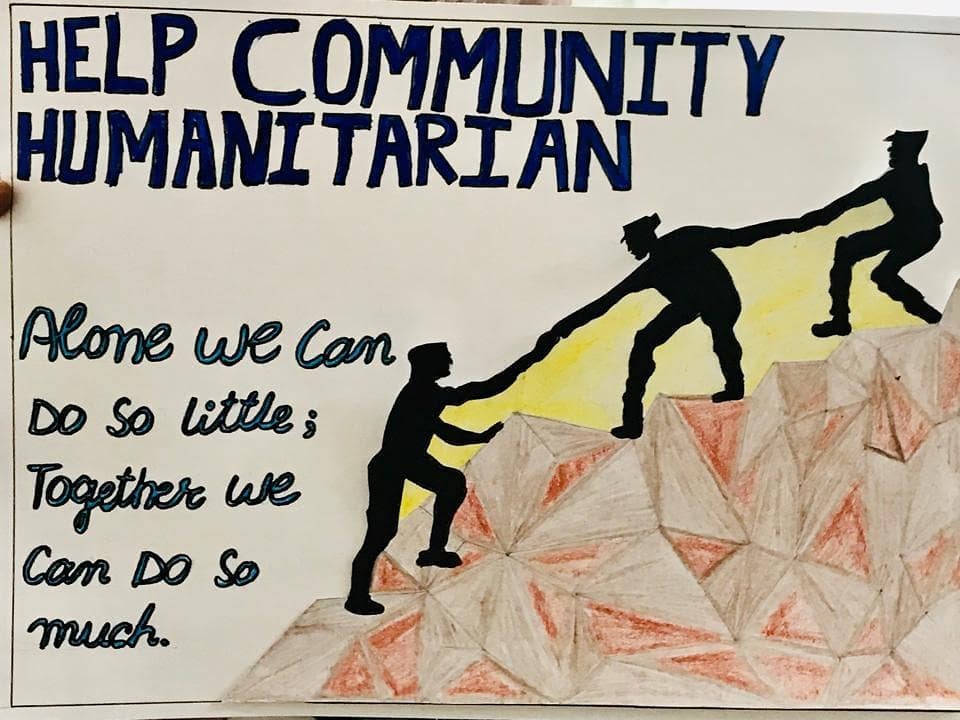 HELP COMMUNITY
HUMANITARIAN
Alone we Can
DO So little;
Together we
Can DO So
much.